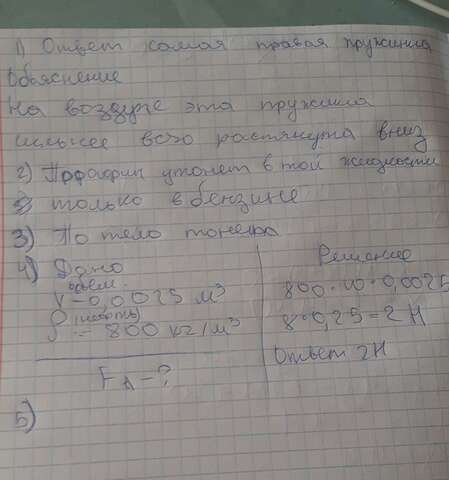 1) Ответ самая правая пружина
Объяснение
На воздухе эта пружина
сильнее всго растянута вниз
2) Парафин утонет в той жидкости
только в бензине
3) По тело тонера
4) Дано
объем.
V = 0,0025 м³
ρ (плотность) = 800 кг/м³
FА - ?
Решение
800·10·0,0025
8·0,25 = 2 Н
Ответ 2Н
5)